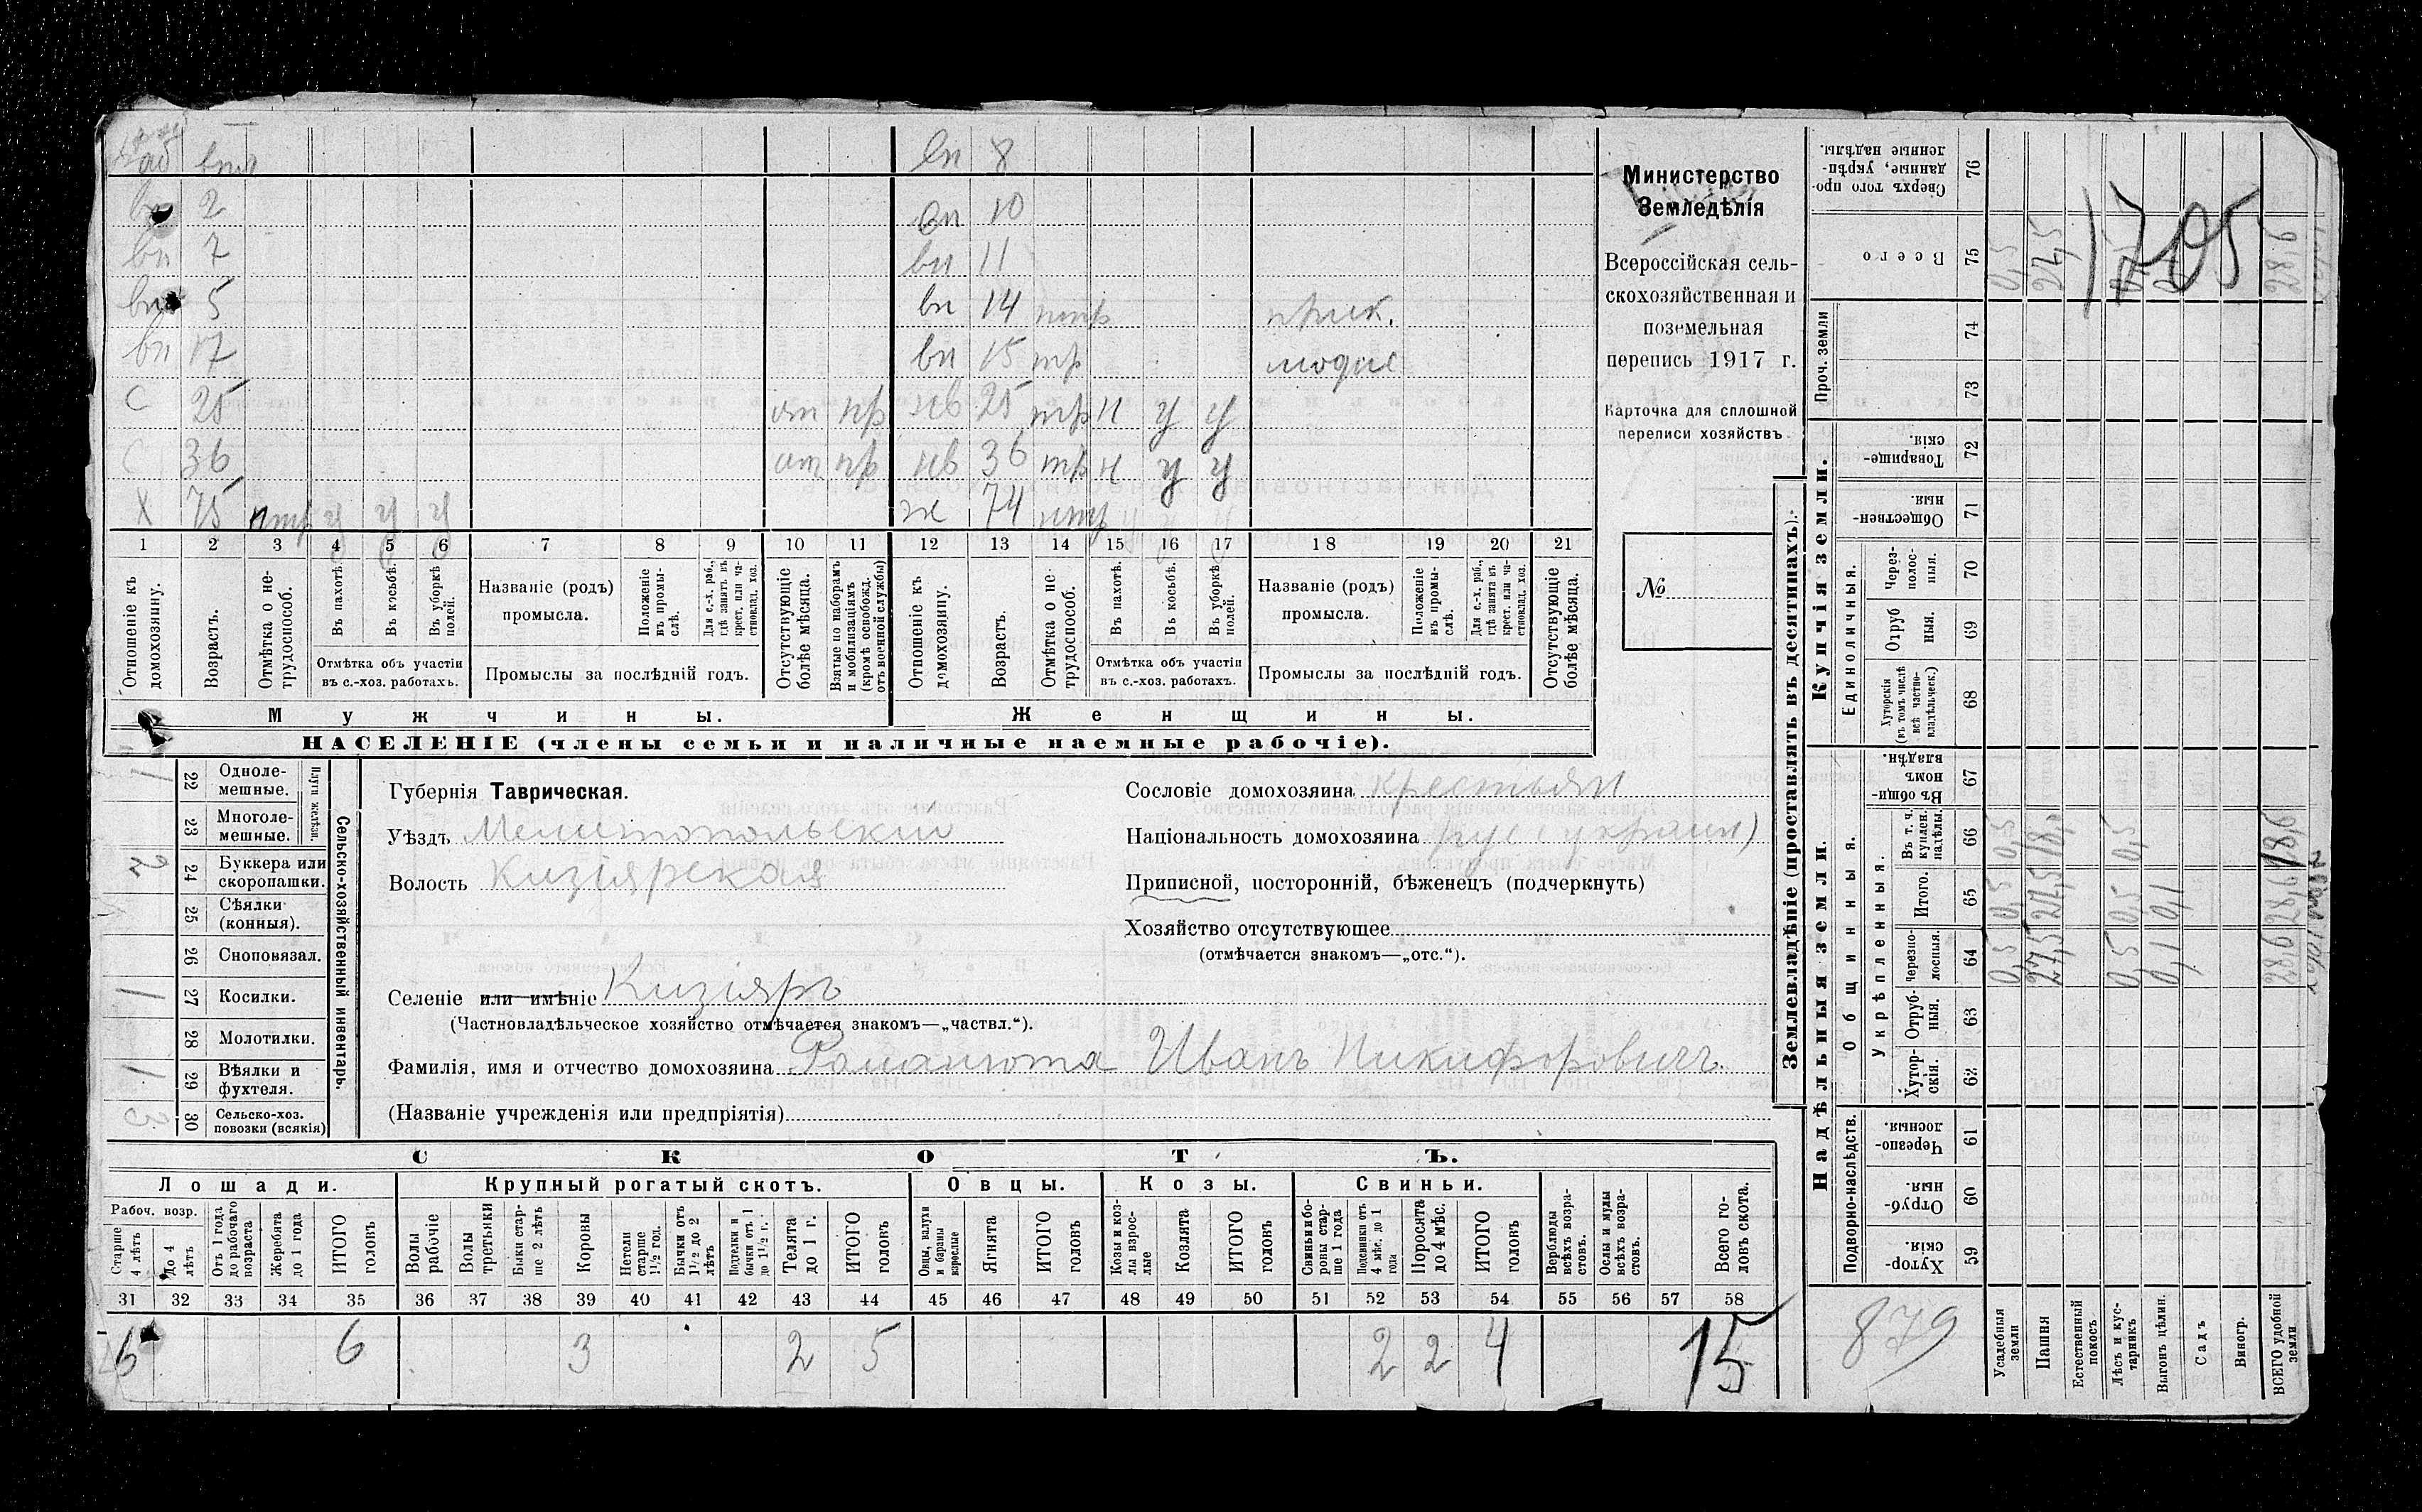 вп 8
вп 2
вп 10
вп 7
вп 11
вп 5
вп 14 птр прик.
вп 17
вп 15 тр модис
С 25 от пр нв 25 тр н у у
С 36 от пр нв 36 тр н у у
Х 75 птр у у у ж 74 птр
1 2 3 4 5 6 7 8 9 10 11 12 13 14 15 16 17 18 19 20 21
Отношеніе къ домохозяину.
Возрастъ.
Отмѣтка о нетрудоспособ.
Въ пахотѣ.
Въ косьбѣ.
Въ уборкѣ полей.
Отмѣтка объ участіи
въ с.-хоз. работахъ.
Названіе (родъ)
промысла.
Положеніе въ промыслѣ.
Для с.-х. раб., гдѣ занятъ въ крест. или частновлад. хоз.
Промыслы за послѣдній годъ.
Отсутствующіе болѣе мѣсяца.
Взятые по наборамъ и мобилизаціямъ (кромѣ освобожд. отъ военной службы)
Отношеніе къ домохозяину.
Возрастъ.
Отмѣтка о не трудоспособ.
Въ пахотѣ.
Въ косьбѣ.
Въ уборкѣ полей.
Отмѣтка объ участіи
въ с.-хоз. работахъ.
Названіе (родъ)
промысла.
Положеніе въ промыслѣ.
Для с.-х. раб., гдѣ занятъ въ крест. или частновлад. хоз.
Промыслы за послѣдній годъ.
Отсутствующіе болѣе мѣсяца.
Мужчины.
Женщины.
НАСЕЛЕНІЕ (члены семьи и наличные наемные рабочіе).
Министерство
Земледѣлія
Всероссійская сель-
скохозяйственная и
поземельная
перепись 1917 г.
Карточка для сплошной
переписи хозяйствъ
№
Сельско-хозяйственный инвентарь.
Плуги желѣзн.
1 22 Однолемешные.
23 Многолемешные.
2 24 Буккера или скоропашки.
25 Сѣялки (конныя).
26 Сноповязал.
1 27 Косилки.
28 Молотилки.
1 29 Вѣялки и фухтеля.
3 30 Сельско-хоз. повозки (всякія)
Губернія Таврическая.
Уѣздъ Мелитопольскій
Волость Кизіярская
Селеніе или имѣніе Кизіяръ
(Частновладѣльческое хозяйство отмѣчается знакомъ—„частвл.“).
Фамилія, имя и отчество домохозяина Романюта Иванъ Никифоровичъ.
(Названіе учрежденія или предпріятія)
Сословіе домохозяина крестьян
Національность домохозяина рус (украин)
Приписной, посторонній, бѣженецъ (подчеркнуть)
Хозяйство отсутствующее
(отмѣчается знакомъ—„отс.“).
СКОТЪ.
Лошади. Крупный рогатый скотъ. Овцы. Козы. Свиньи.
Рабоч. возр.
Старше 4 лѣтъ
До 4 лѣтъ
Отъ 1 года до рабочаго возраста
Жеребята до 1 года
ИТОГО головъ
Волы рабочіе
Волы третьяки
Быки старше 2 лѣтъ
Коровы
Нетели старше 1½ год.
Бычки отъ 1½ до 2 лѣтъ
Подтелки и бычки отъ 1 до 1½ г.
Телята до 1 г.
ИТОГО головъ
Овцы, валухи и бараны взрослые
Ягнята
ИТОГО головъ
Козы и козлы взрослые
Козлята
ИТОГО головъ
Свиньи и боровы старше 1 года
Подсвинки отъ 4 мѣс. до 1 года
Поросята до 4 мѣс.
ИТОГО головъ
Верблюды всѣхъ возрастовъ.
Ослы и мулы всѣхъ возрастовъ.
Всего головъ скота.
31 32 33 34 35 36 37 38 39 40 41 42 43 44 45 46 47 48 49 50 51 52 53 54 55 56 57 58
6 6 3 2 5 2 2 4 15
Землевладѣніе (проставлять въ десятинахъ).
Надѣльныя земли.
Купчія земли.
Проч. земли
Сверхъ того проданные, укрѣпленные надѣлы. 76
Всего 75 0,5 27,5 0,5 28,6
1705
74
73
Товарищескія. 72
Общественныя. 71
Единоличныя.
Черезполосныя. 70
Отрубныя. 69
Хуторскія (въ томъ числѣ всѣ частновладѣльческ.) 68
Общинныя.
Въ общинномъ владѣн. 67
Укрѣпленныя.
Въ т. ч. куплен. надѣлы. 66 0,5 18, 0,5
Итого. 65 0,5 27,5 0,5 0,1 28,6
Черезполосныя. 64 0,5 27,5 0,5 0,1 28,6
Отрубныя. 63
Хуторскія. 62
Подворно-наслѣдств.
Черезполосныя. 61
Отрубныя. 60
Хуторскія. 59
879
Усадебныя земли
Пашня
Естественный покосъ
Лѣсъ и кустарникъ
Выгонъ цѣлин.
Садъ
Виногр.
ВСЕГО удобной земли